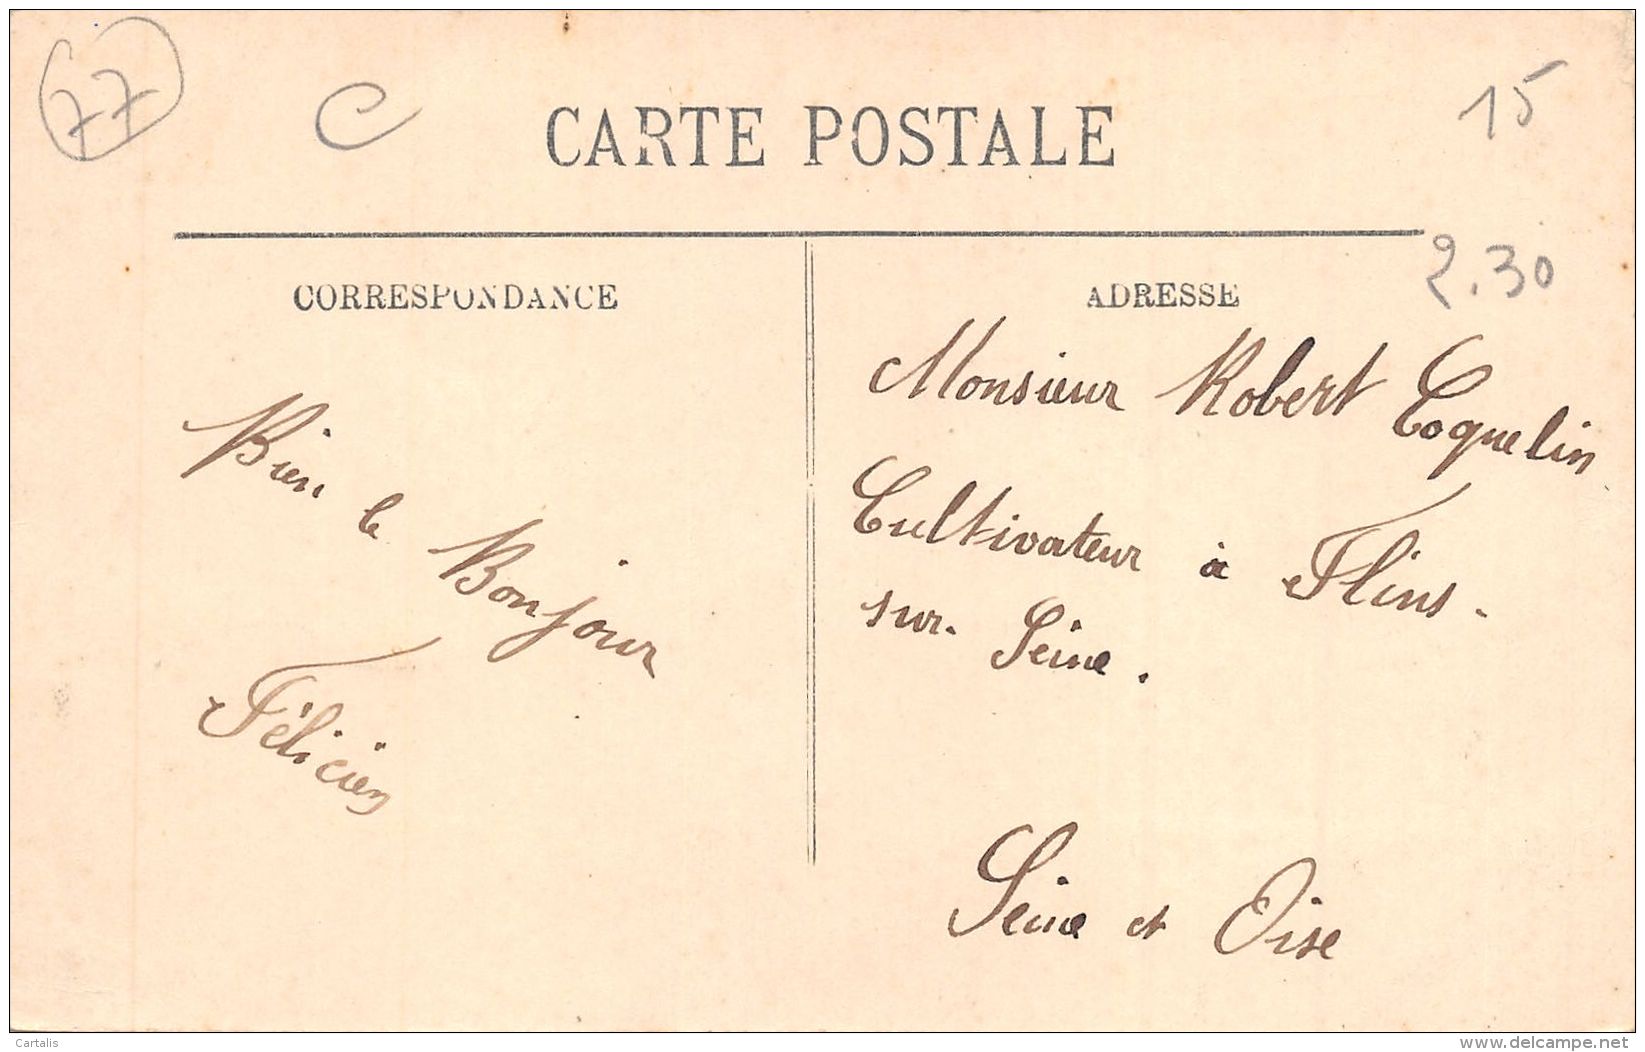 77
C
CARTE POSTALE
15
2.30
CORRESPONDANCE
Bien le Bonjour
Félicien
ADRESSE
Monsieur Robert Coquelin
Cultivateur à Flins-
sur-Seine.
Seine et Oise
Cartalis
www.delcampe.net